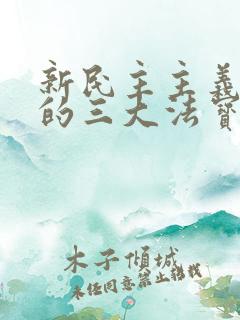 新民主主义
的三大法宝
木子倾城
未经同意禁止转载